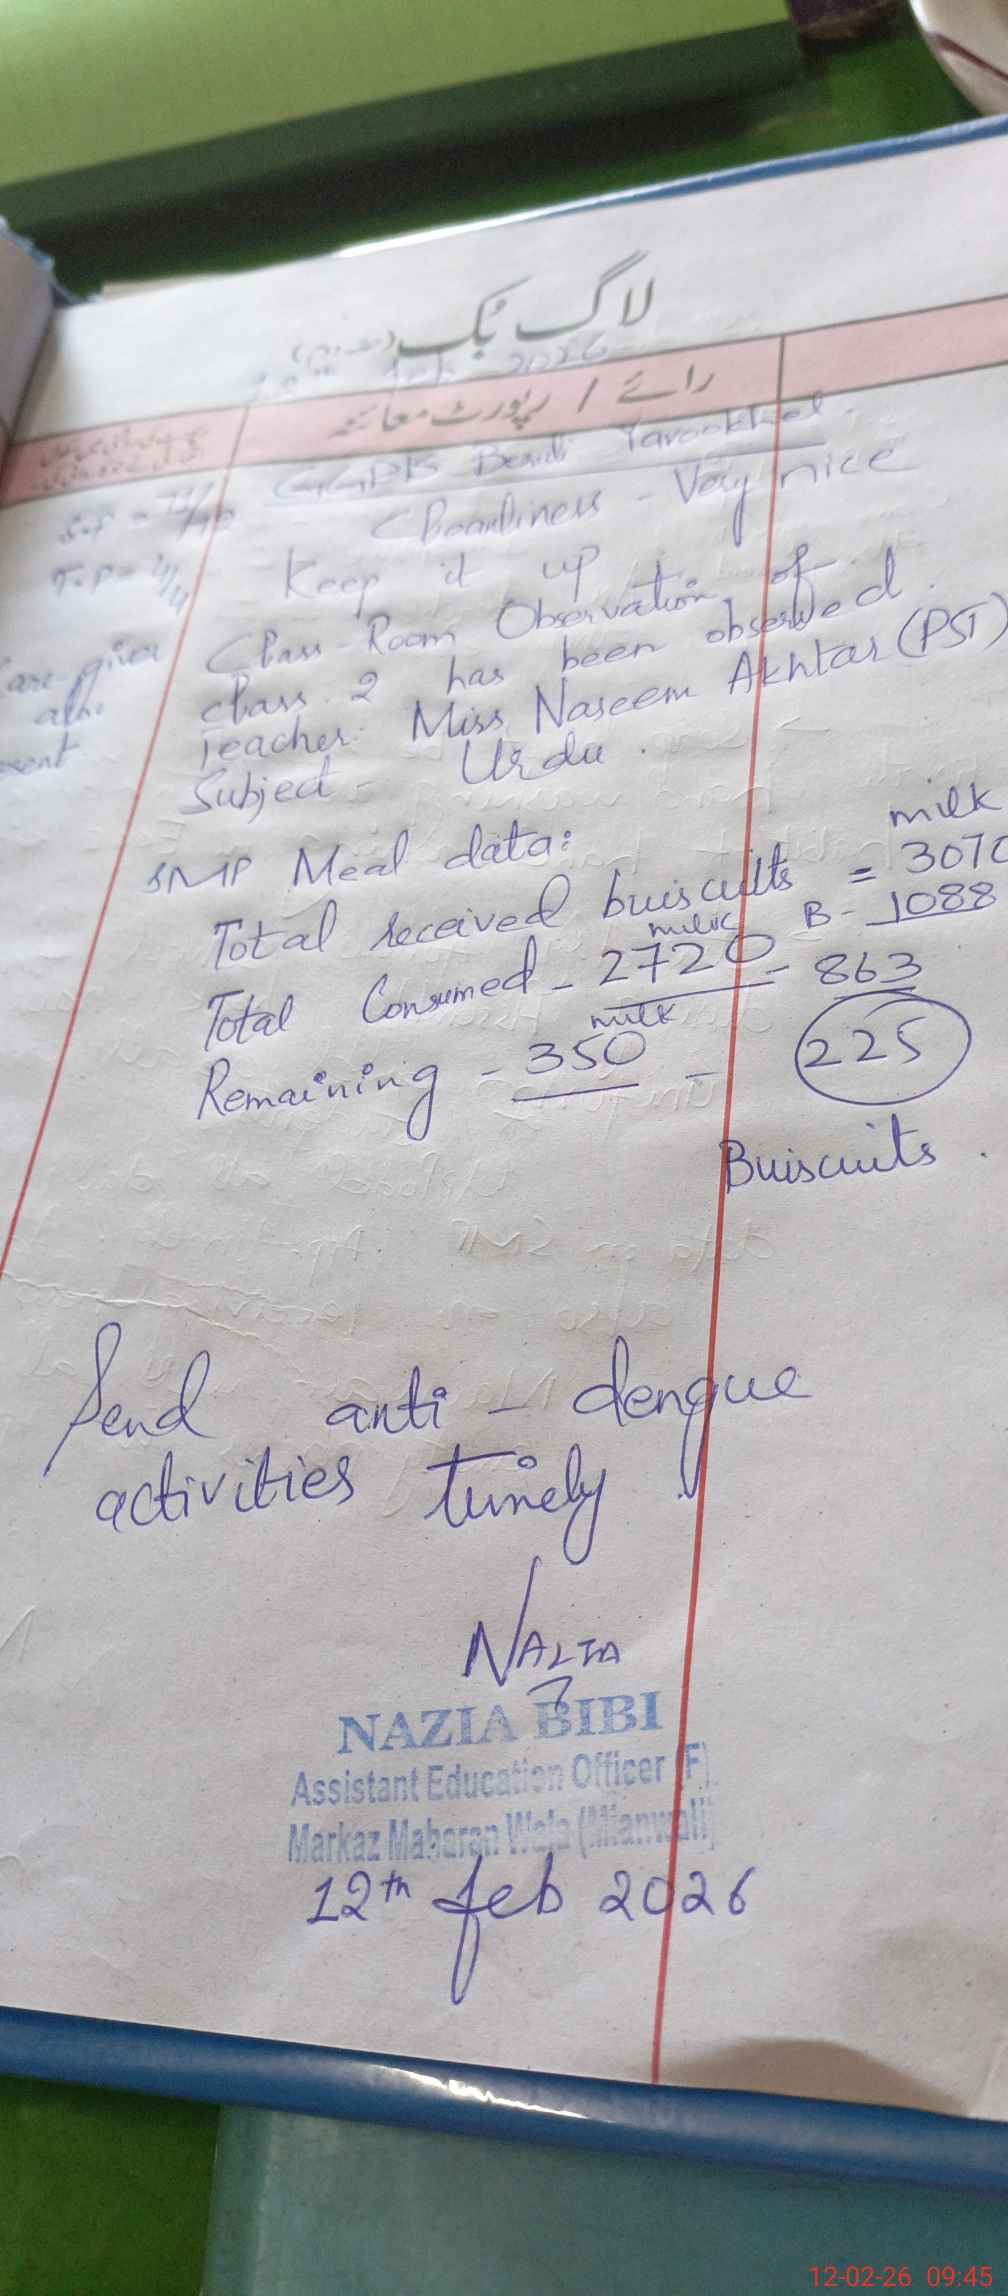 لاگ بک
Feb 2026
رائے / رپورٹ معائنہ
Yarookhel.
S.P =
Cleanliness - Very nice
T.P =
Keep it up
Class-Room Observation of
Care giver
class 2 has been observed.
also
Teacher: Miss Naseem Akhtar (PST)
Subject - Urdu.
SMP Meal data:
milk
Total received buiscuits = 3070
B - 1088
milk
Total Consumed - 2720 - 863
milk
Remaining - 350 - 225
Buiscuits.
Send anti-dengue
activities timely
NAZIA
NAZIA BIBI
Assistant Education Officer (F)
Markaz Maharan Wala (Mianwali)
12th feb 2026
12-02-26 09:45